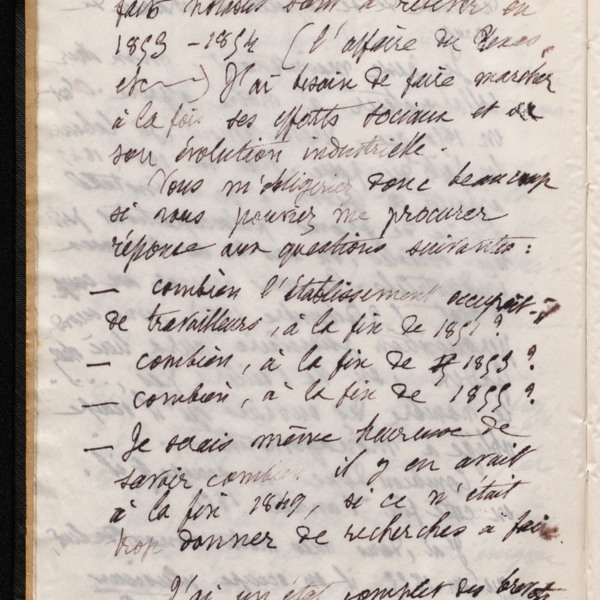 faits notables sont à relever en
1853 - 1854 (l'affaire du Texas,
etc) J'ai besoin de faire marcher
à la fois ses efforts sociaux et
son évolution industrielle.
Vous m'obligeriez donc beaucoup
si vous pouviez me procurer
réponse aux questions suivantes :
— combien l'établissement occupait-il
de travailleurs, à la fin de 1851 ?
— combien, à la fin de 1853 ?
— combien, à la fin de 1855 ?
— Je serais même heureuse de
savoir combien il y en avait
à la fin 1849, si ce n'était
trop donner de recherches à faire.
J'ai un état complet des brevets